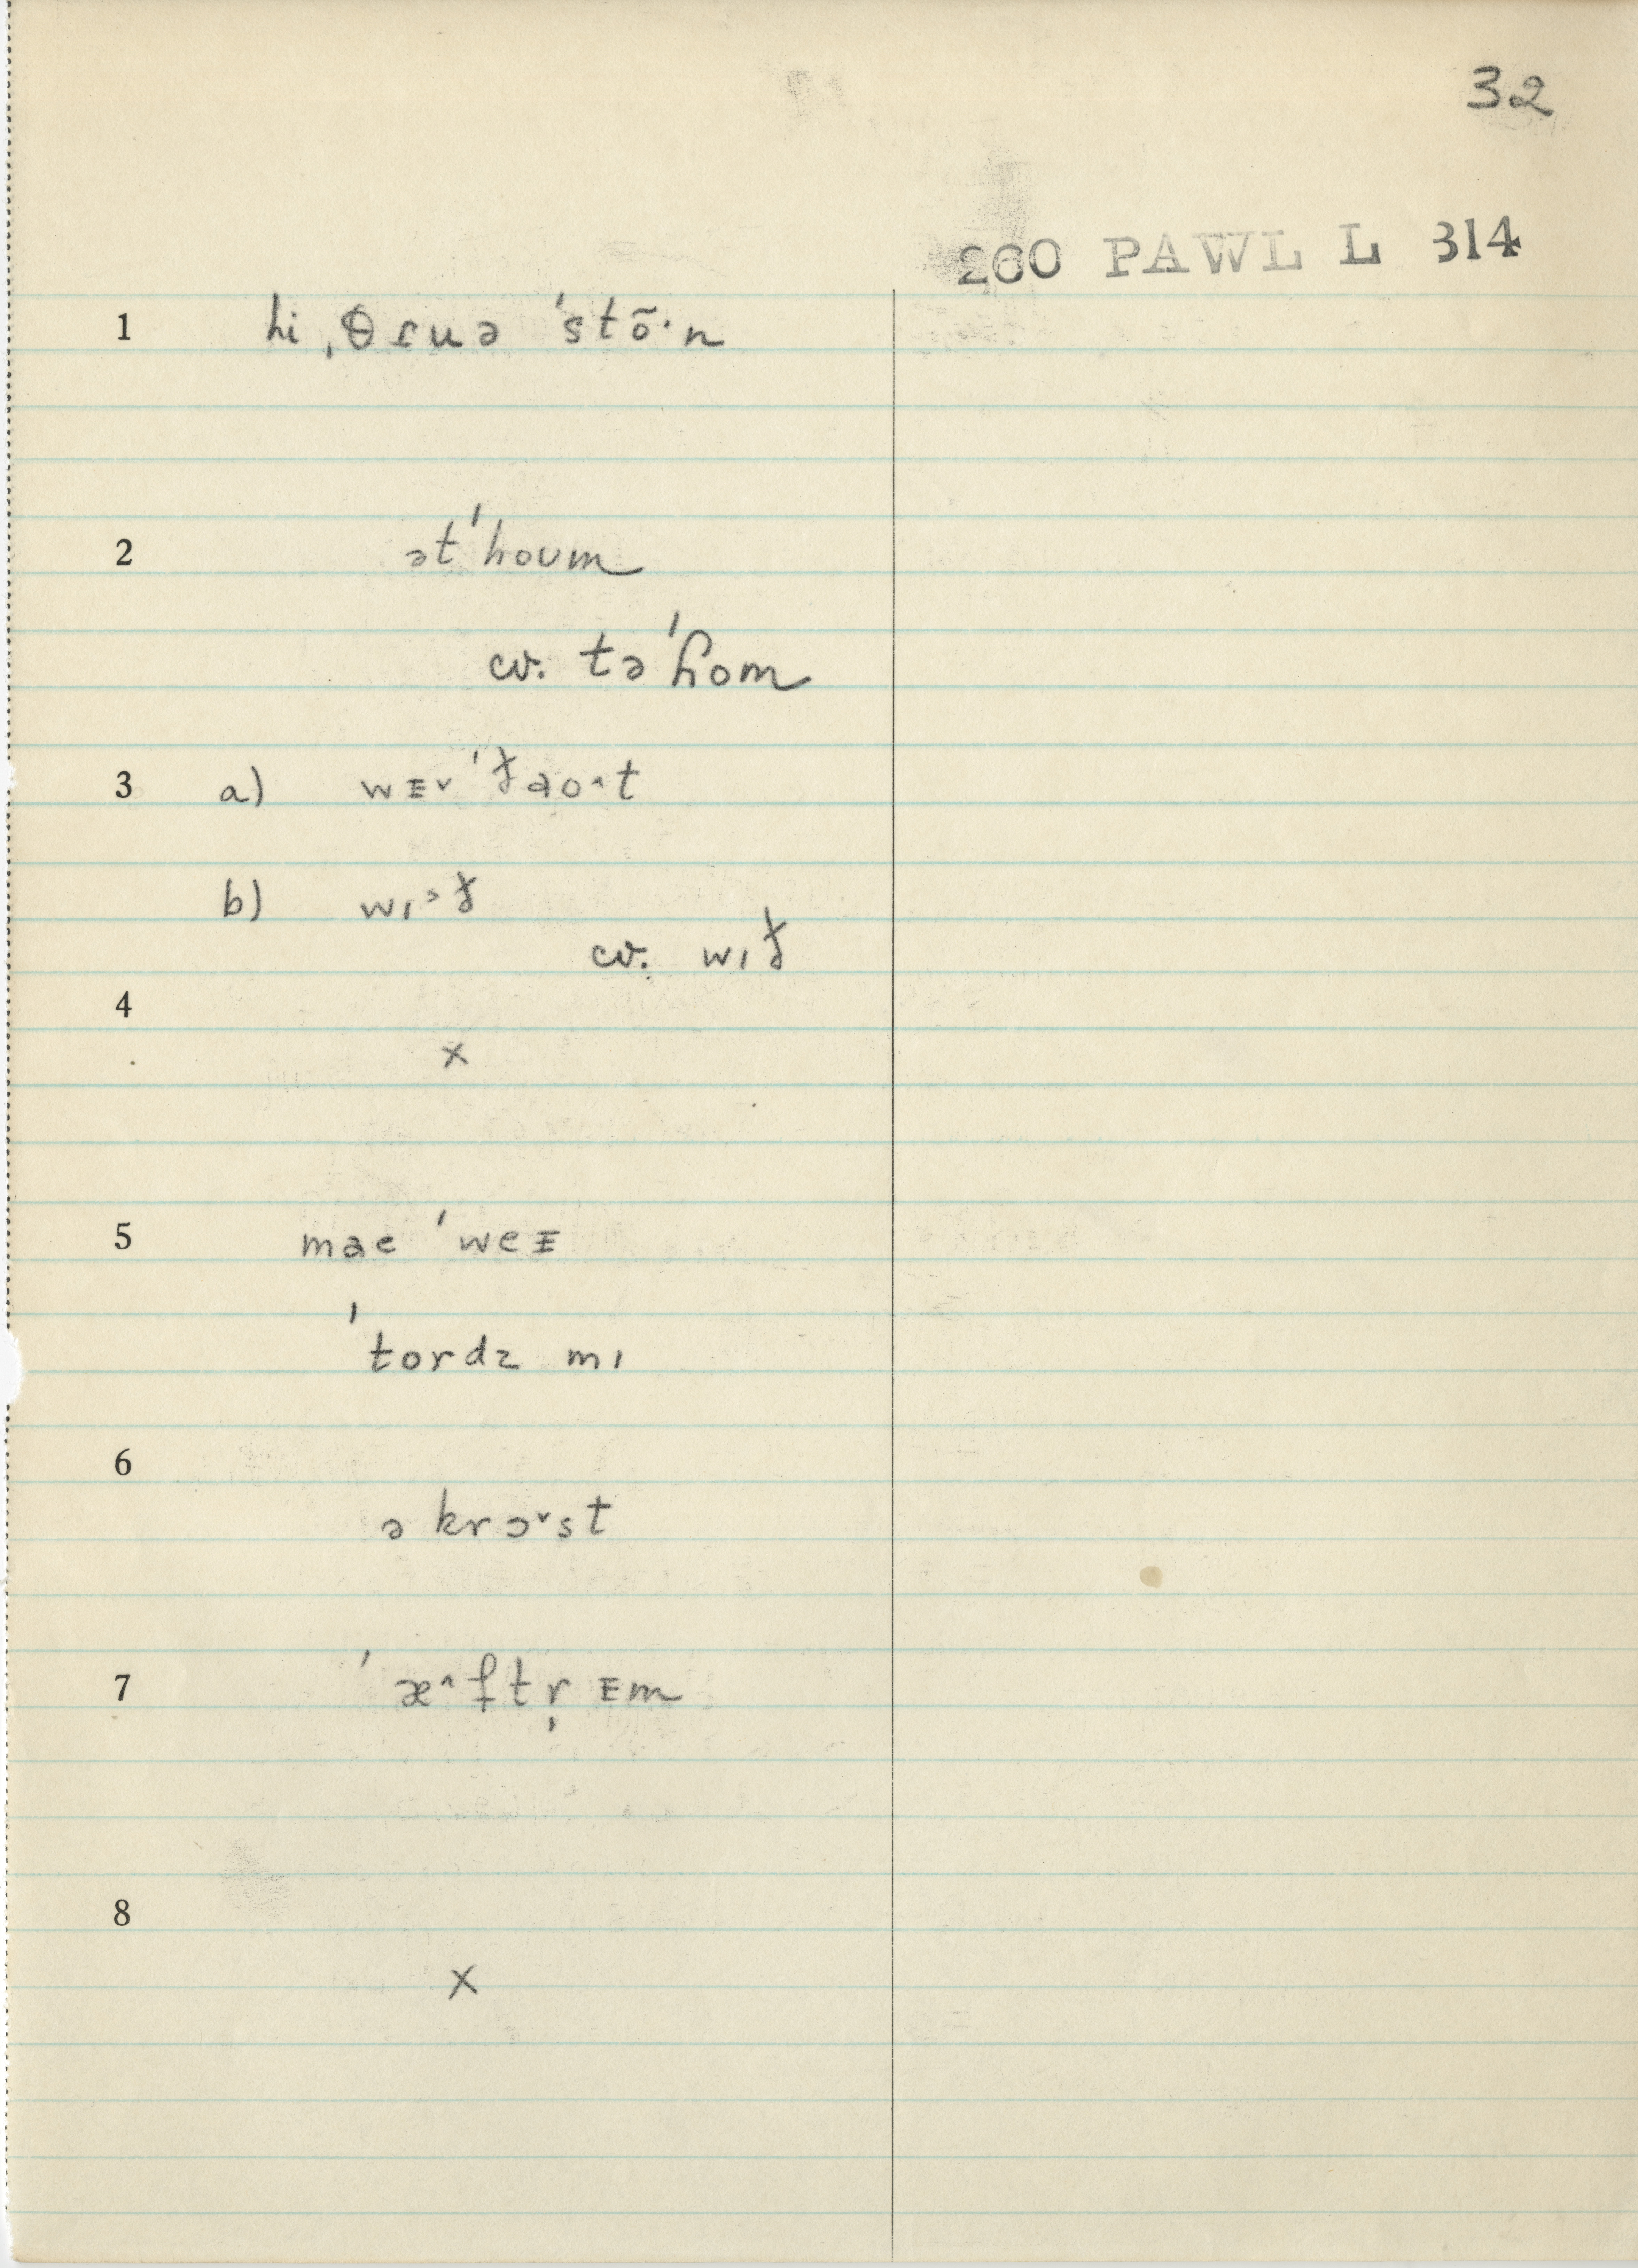 32
260 PAWL L 314
1 hi ˌθɾuə ˈstõ·n
2 ətˈhoʊm
cv. təˈɦom
3 a) wᴇ˅ ˈɟao˄t
b) wɪ˃ɟ
cv. wɪɟ
4
x
5 mae ˈweᴇ
ˈtordz mɪ
6
ə krɔ˅st
7 ˈæ˄ftr̩ ᴇm
8
x